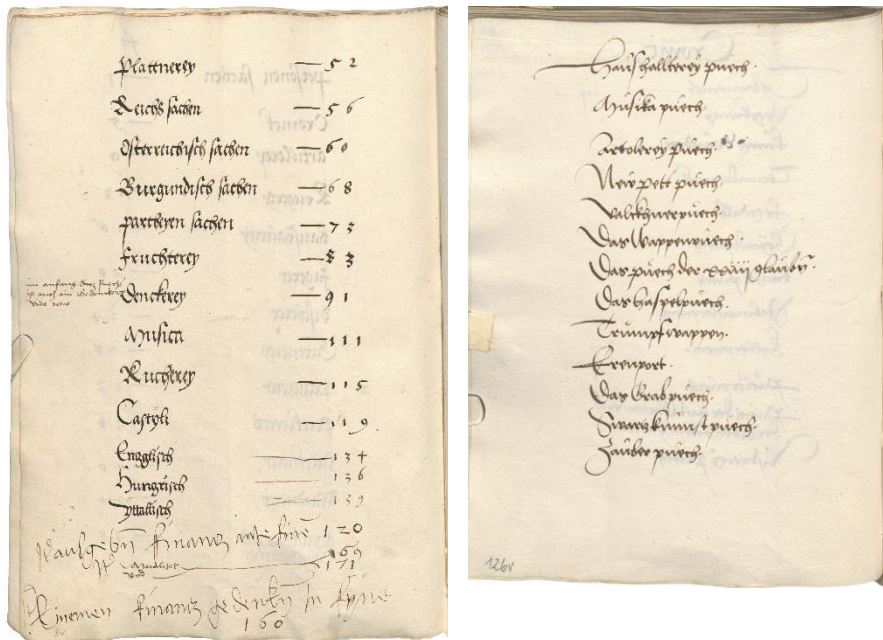 Plattnerey — 52
Reichs sachen — 56
Osterreichisch sachen — 60
Burgundisch sachen — 68
partheyen sachen — 75
fruchterey — 83
im anfang
Denckerey — 91
Musica — 111
Kucherey — 115
Castoli — 119
Engglisch — 134
Hungrisch — 136
yttallisch — 139
finantz 120
169
171
finantz in
160
Haushallterey puech.
Musika puech.
Artolerey puech.
New pett puech.
Valcknerpuech.
Das Wappenpuech.
Das puech der xxiii glaubn.
Das haspelpuech.
Trumpfwappen.
Erenport.
Das Grabpuech.
Swartzkunnst puech.
Zauber puech.
126v